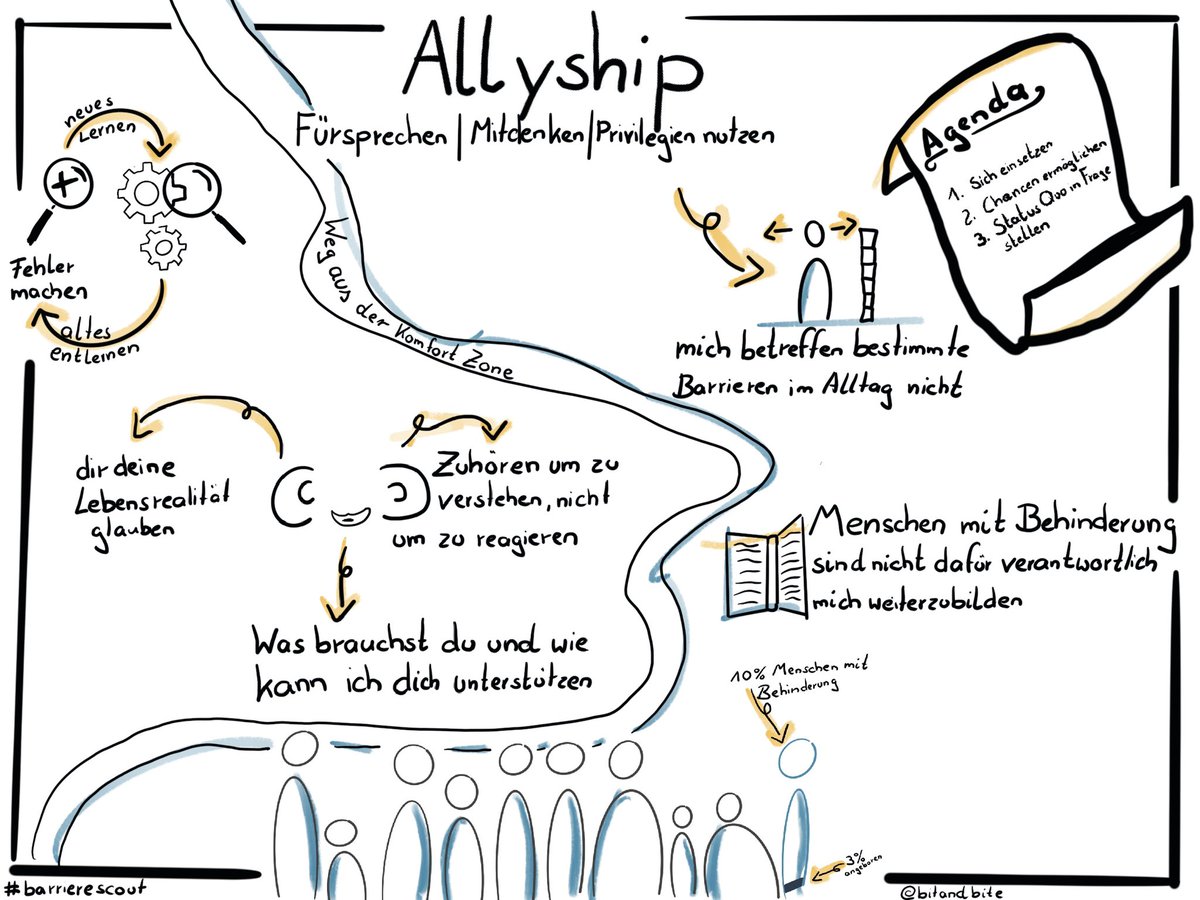 Allyship
Fürsprechen | Mitdenken/Privilegien nutzen
Agenda
1. Sich einsetzen
2. Chancen ermöglichen
3. Status Quo in Frage
stellen
neues
Lernen
Fehler
machen
altes
entlernen
Weg aus der Komfort Zone
mich betreffen bestimmte
Barrieren im Alltag nicht
dir deine
Lebensrealität
glauben
Zuhören um zu
verstehen, nicht
um zu reagieren
Was brauchst du und wie
kann ich dich unterstützen
Menschen mit Behinderung
sind nicht dafür verantwortlich
mich weiterzubilden
10% Menschen mit
Behinderung
3%
angeboren
#barrierescout
@bitandbite